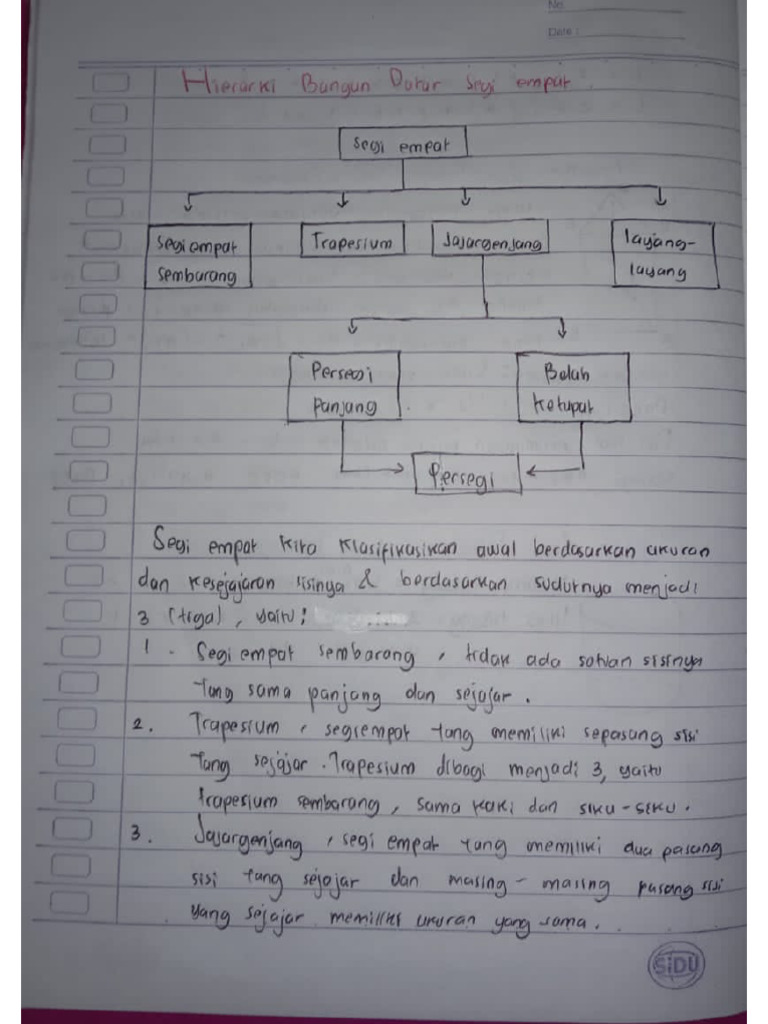 No
Date :
Hierarki Bangun Datar Segi empat.
Segi empat
Segi empat
sembarang
Trapesium
Jajargenjang
layang-
layang
Persegi
Panjang
Belah
Ketupat
Persegi
Segi empat kita klasifikasikan awal berdasarkan ukuran
dan kesejajaran sisinya & berdasarkan sudutnya menjadi
3 (tiga), yaitu:
1. Segi empat sembarang, tidak ada satuan sisinya
yang sama panjang dan sejajar.
2. Trapesium, segiempat yang memiliki sepasang sisi
yang sejajar. Trapesium dibagi menjadi 3, yaitu
trapesium sembarang, sama kaki dan siku-siku.
3. Jajargenjang, segi empat yang memiliki dua pasang
sisi yang sejajar dan masing-masing pasang sisi
yang sejajar memiliki ukuran yang sama.
SiDU